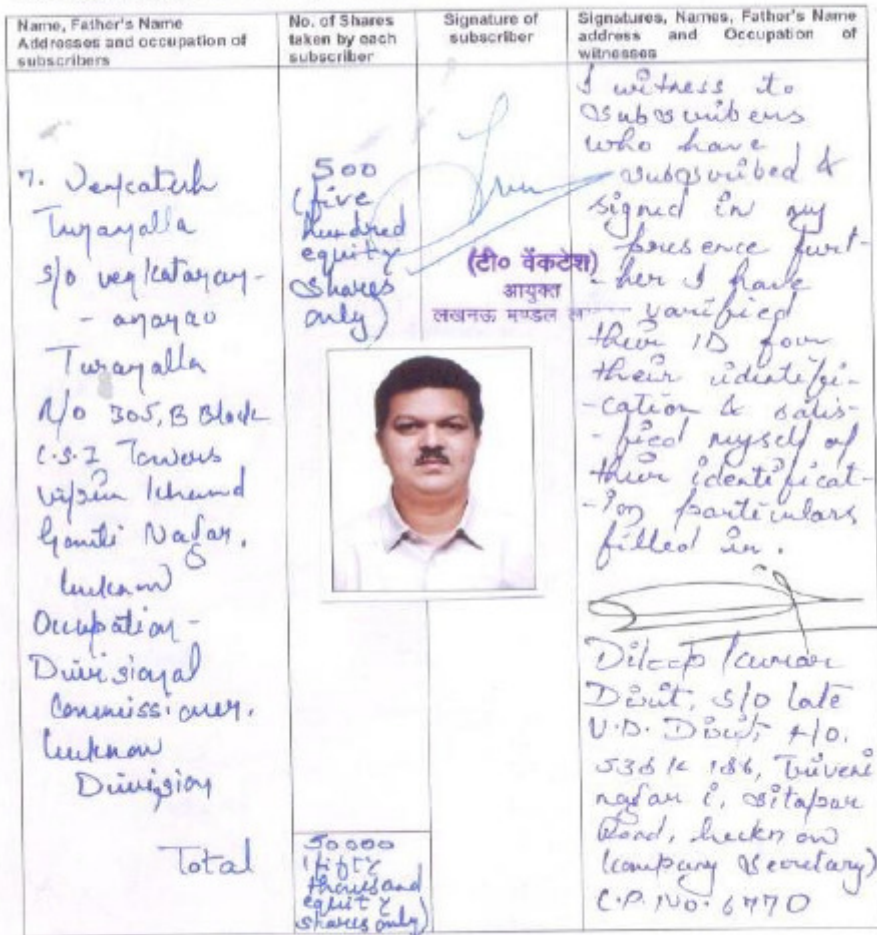 Name, Father's Name
Addresses and occupation of
subscribers
No. of Shares
taken by each
subscriber
Signature of
subscriber
Signatures, Names, Father's Name
address and Occupation of
witnesses
7. Venkatesh
s/o
R/o 305, B Block
C.S.I Towers
Vipin Khand
Gomti Nagar,
Lucknow
Occupation -
Divisional
Commissioner,
Lucknow
Division
Total
500
(five
hundred
equity
shares
only)
50000
(fifty
thousand
equity
shares only)
(टी० वेंकटेश)
आयुक्त
लखनऊ मण्डल
I witness to
subscribers
who have
subscribed &
signed in my
presence furt-
-her I have
varified
their ID for
their identifi-
-cation & satis-
-fied myself of
their identificat-
-ion particulars
filled in.
Dileep Kumar
Dixit, s/o late
V.D. Dixit, r/o.
538 K 186, Triveni
nagar i, sitapur
Road, Lucknow
(company secretary)
C.P. No. 6770